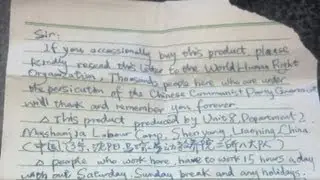 Sir:
If you occassionally buy this product, please
kindly resend this letter to the World Human Right
Organization. Thousands people here who are under
the persicution of the Chinese Communist Party Government
will thank and remember you forever.
This product produced by Unit 8, Department 2,
Mashanjia Labour Camp, Shen yang, Liaoning, China
(中国,辽宁,沈阳,马三家劳动教养院二所八大队)
people who work here, have to work 15 hours a day
with out Saturday, Sunday break and any holidays.